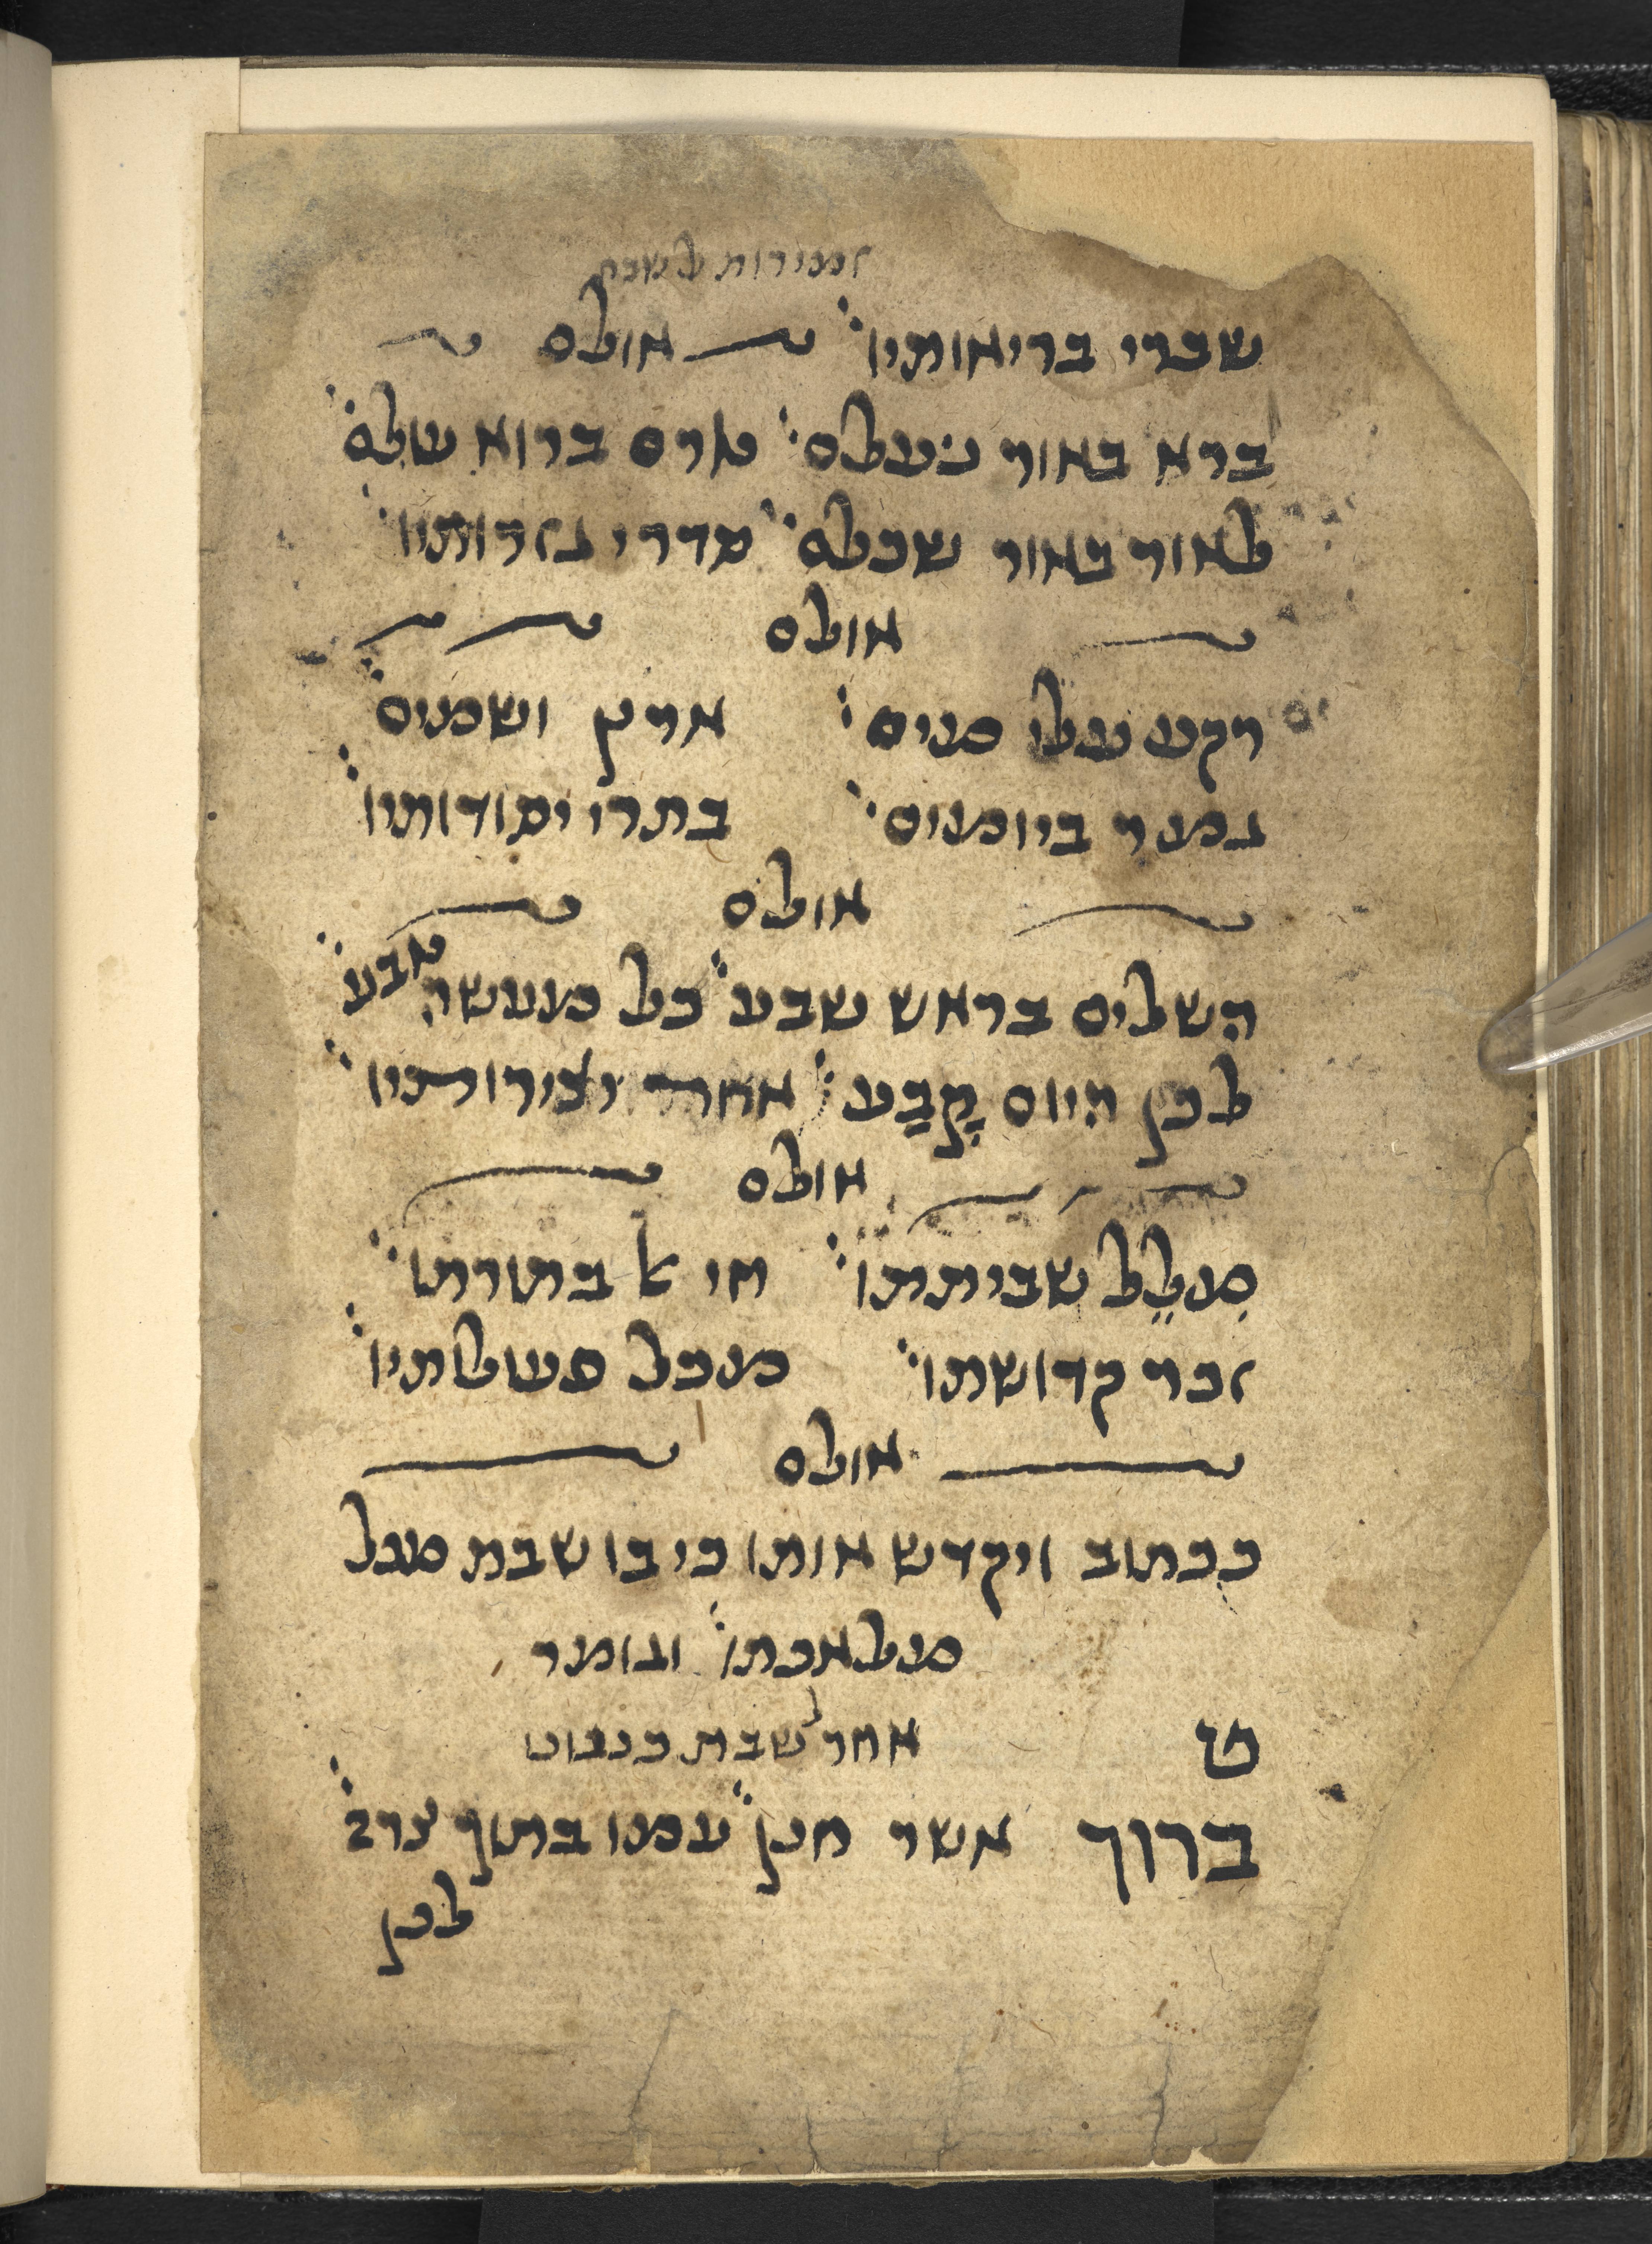 שברי בריאותיו אולם
ברא באור נעלם טרם ברוא שלם
לאור באור שכלם סדרי גזרותיו
אולם
רקע עלי מים ארץ ושמים
גמר ביומים בתרי יסודותיו
אולם
השלים בראש שבע כל מעשה טבע
לכן היום קבע אחר יצירותיו
אולם
מלל שביתתו חי אל בתורתו
זכר קדושתו מכל פעלתיו
אולם
ככתוב ויקדש אותו כי בו שבת מכל
מלאכתו וגומר
אחר לשבת
ברוך אשר חנן עמנו בתוך
לכן